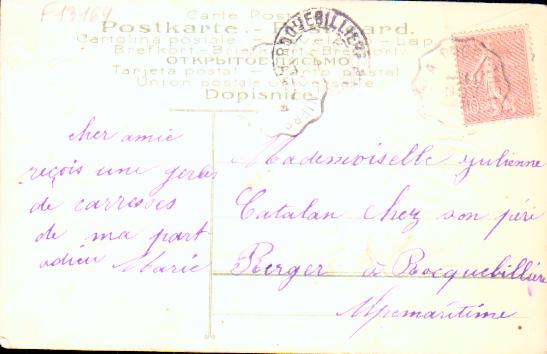 F13164
Carte Postale
Postkarte
Cartolina postale
Brefkort
ОТКРЫТОЕ ПИСЬМО
Tarjeta postal
Union postale universelle
Dopisnice
ROQUEBILLIERE
cher amie
reçois une gerbe
de carresses
de ma part
adieu Marie
Mademoiselle Julienne
Catalan chez son péré
Berger à Rocquebilliére
Alpemaritime